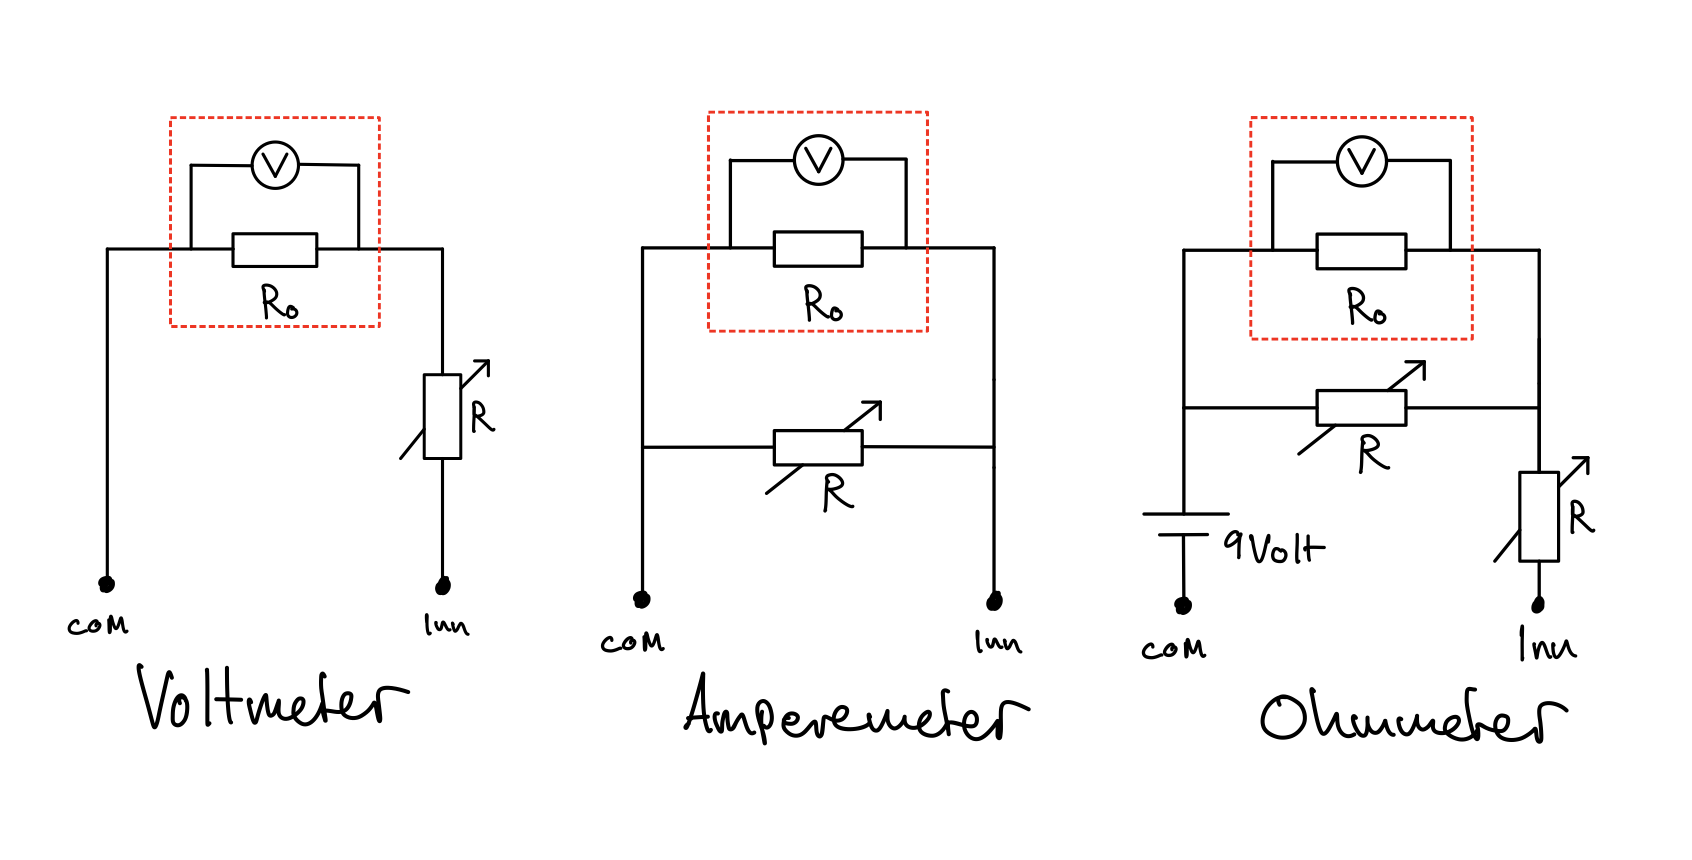 V
R₀
R
com
Inn
Voltmeter
V
R₀
R
com
Inn
Amperemeter
V
R₀
R
9Volt
R
com
Inn
Ohmmeter